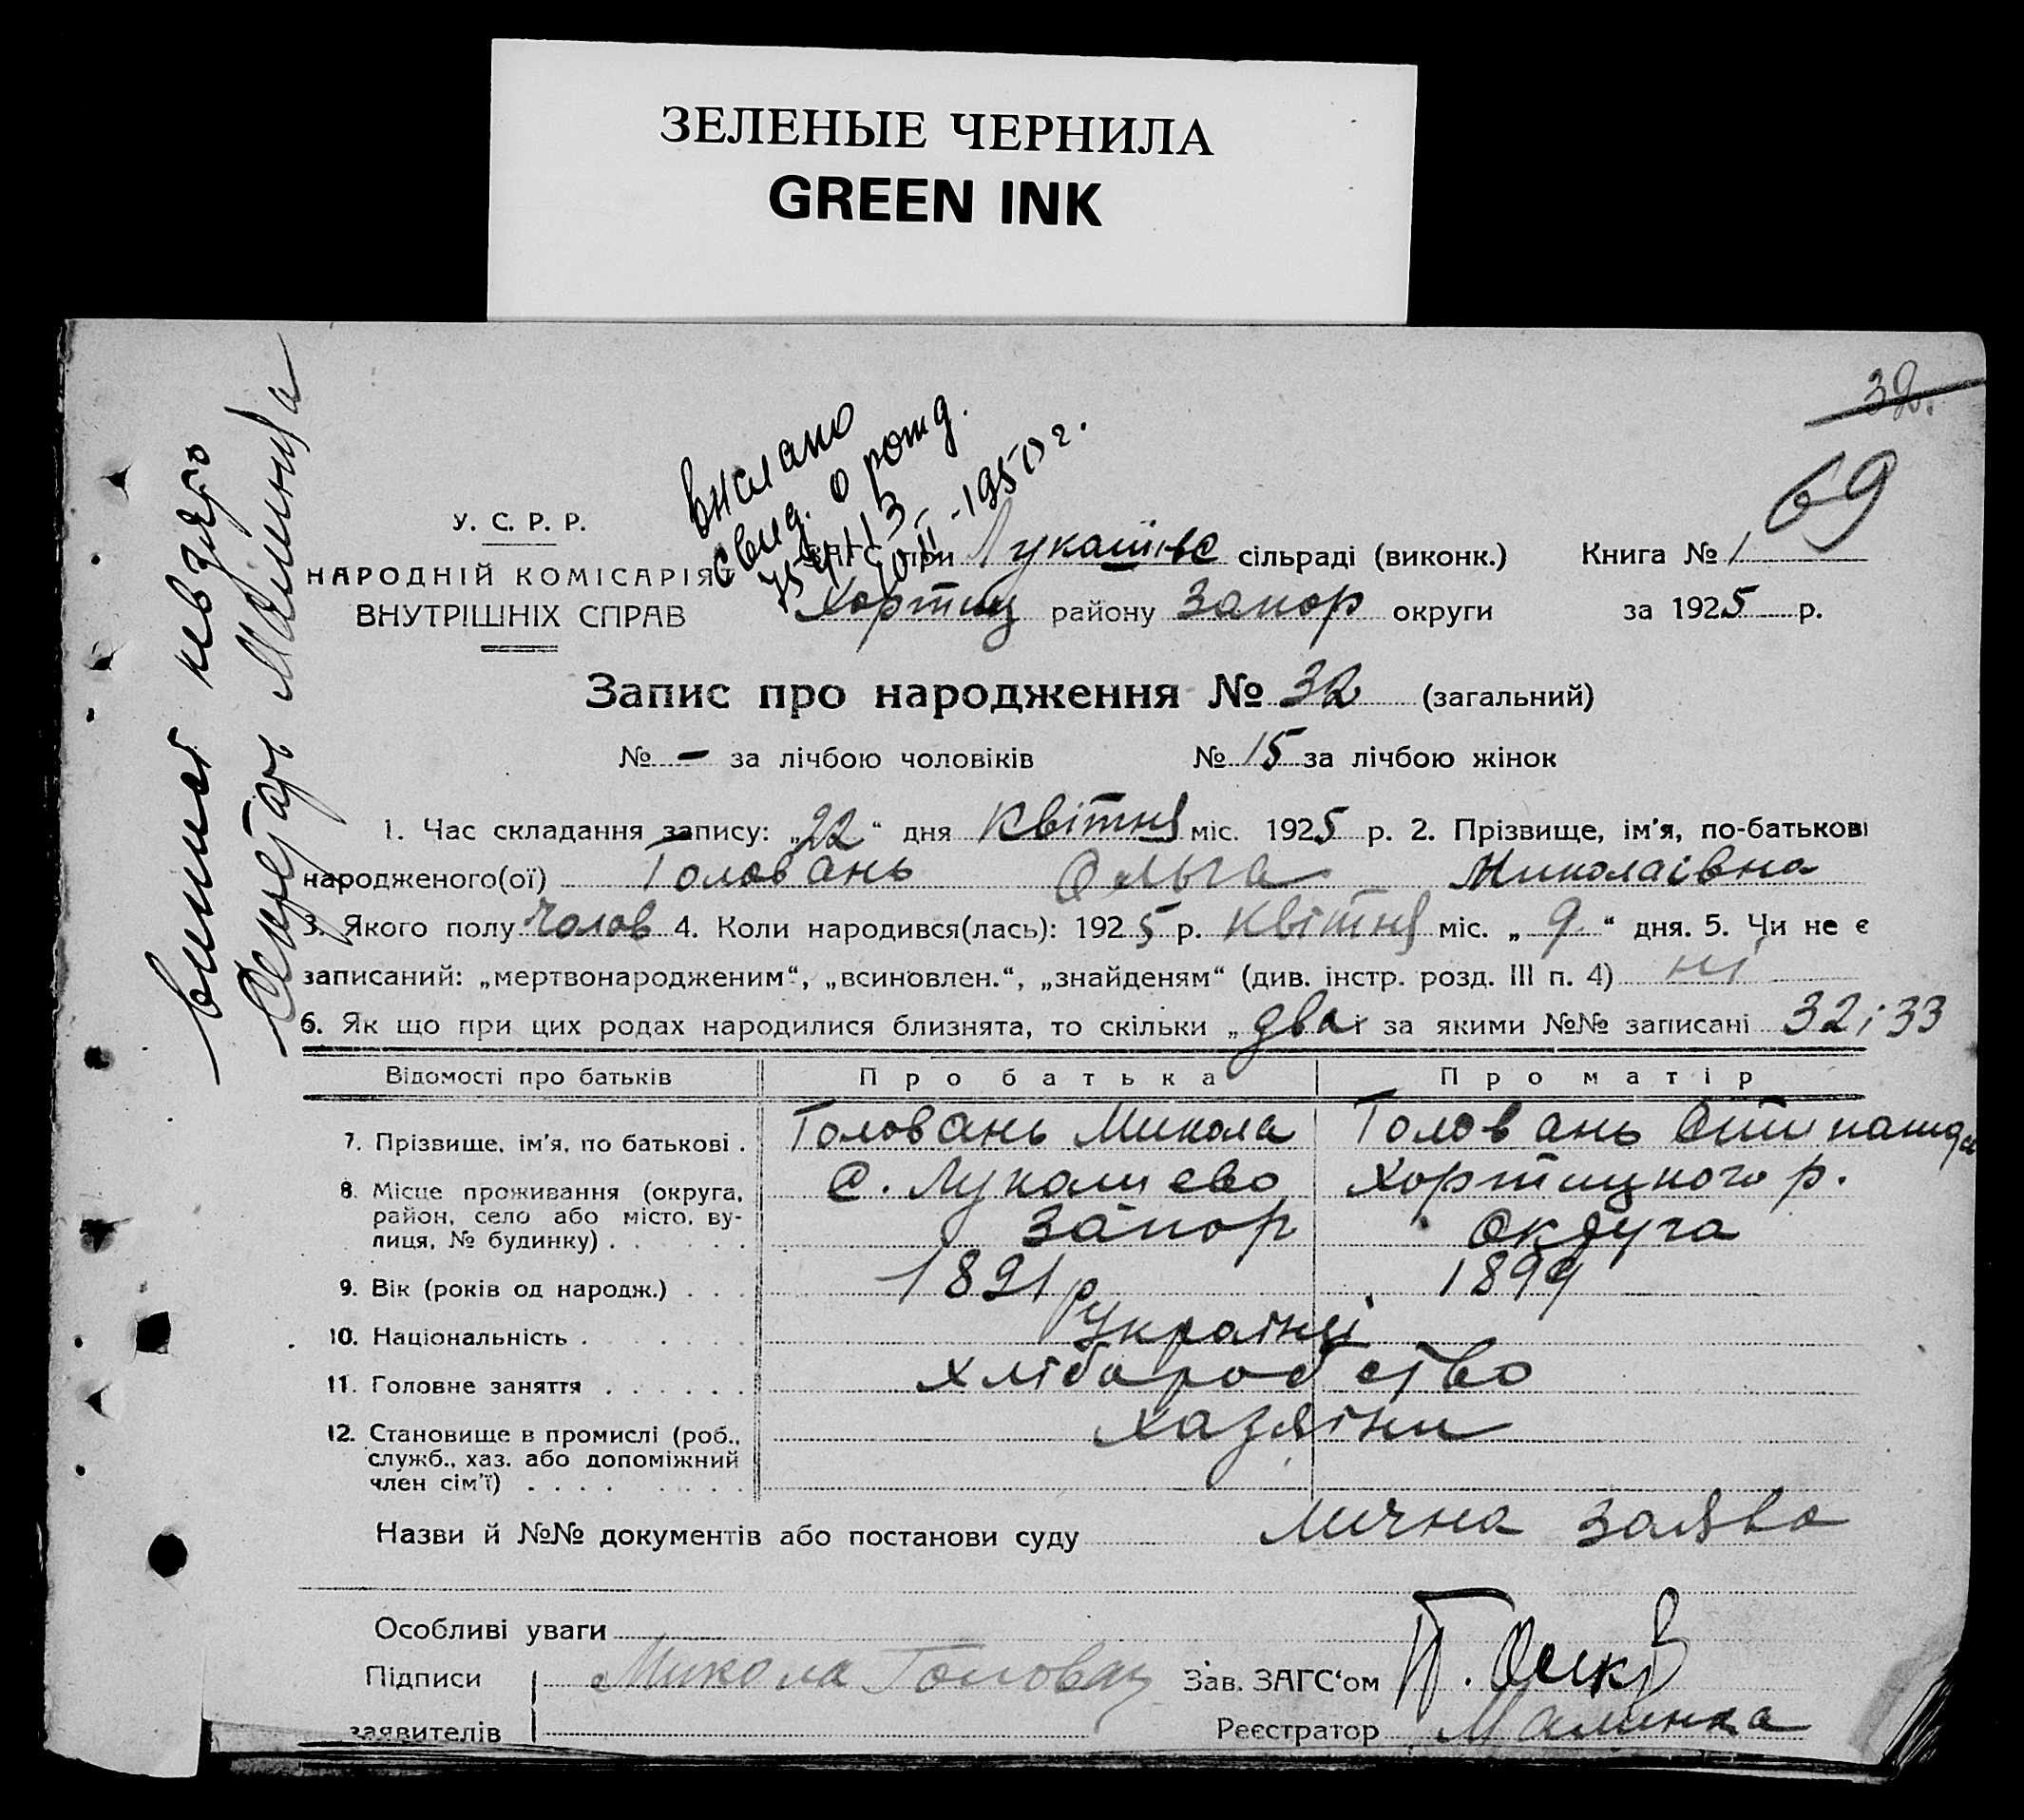 ЗЕЛЕНЫЕ ЧЕРНИЛА
GREEN INK
32.
69
Випис не взято
Секретарь Малинка
Выслано
свид. о рожд.
-1950 г.
У. С. Р. Р.
НАРОДНІЙ КОМІСАРІЯТ
ВНУТРІШНІХ СПРАВ
при Лукашівс сільраді (виконк.)
Хортиц району Запор округи
Книга № 1
за 1925 р.
Запис про народження № 32 (загальний)
№ - за лічбою чоловіків № 15 за лічбою жінок
1. Час складання запису: „22“ дня Квітня міс. 1925 р. 2. Прізвище, ім'я, по-батькові
народженого(ої) Головань Ольга Миколаівна
3. Якого полу Чолов 4. Коли народився(лась): 1925 р. Квітня міс. „9“ дня. 5. Чи не є
записаний: „мертвонародженим“, „всиновлен.“, „знайденям“ (див. інстр. розд. III п. 4) ні
6. Як що при цих родах народилися близнята, то скільки „два і за якими №№ записані 32 і 33
Відомості про батьків Про батька Про матір
7. Прізвище, ім'я, по батькові . Головань Микола Головань
8. Місце проживання (округа, район, село або місто, ву-
лиця, № будинку) . . . . . . С. Лукашево Хортицкого р.
Запор Округа
9. Вік (років од народж.) . . . 1891 р 1899
10. Національність . . . . . . Українці
11. Головне заняття . . . . . . хліборобство
12. Становище в промислі (роб.,
служб., хаз. або допоміжний
член сім'ї) . . . . . . . . хазяіни
Назви й №№ документів або постанови суду Лична заява
Особливі уваги
Підписи
заявителів
Микола Головань
Зав. ЗАГС‘ом
Реєстратор Малинка